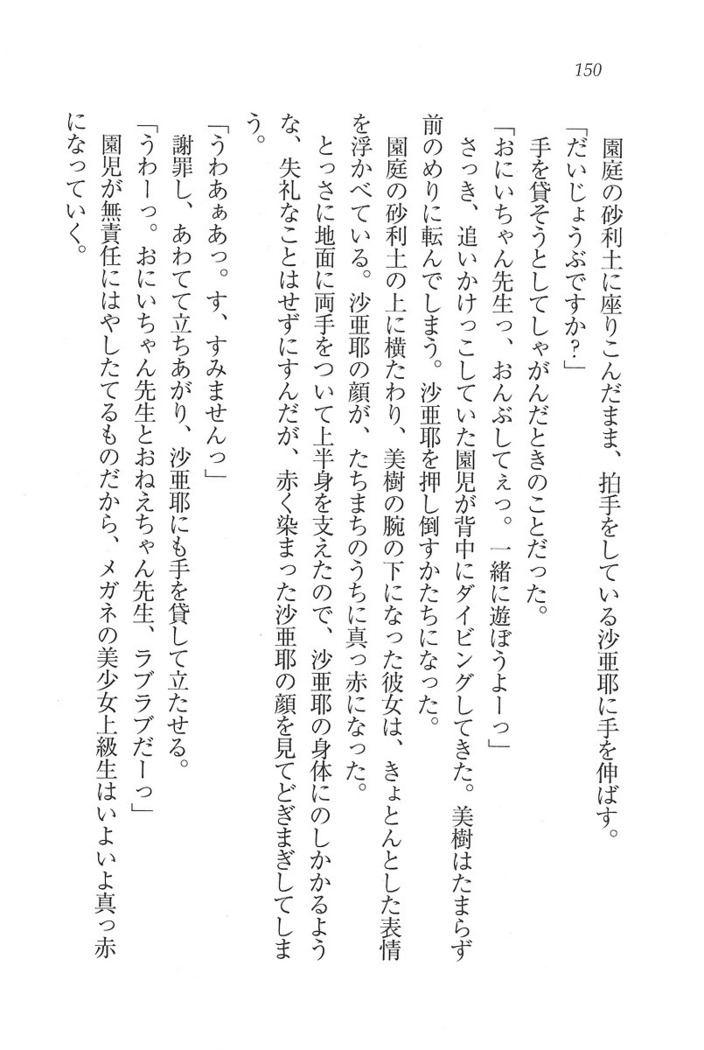 150
園庭の砂利土に座りこんだまま、拍手をしている沙亜耶に手を伸ばす。
「だいじょうぶですか?」
手を貸そうとしてしゃがんだときのことだった。
「おにいちゃん先生っ、おんぶしてぇっ。一緒に遊ぼうよーっ」
さっき、追いかけっこしていた園児が背中にダイビングしてきた。美樹はたまらず
前のめりに転んでしまう。沙亜耶を押し倒すかたちになった。
園庭の砂利土の上に横たわり、美樹の腕の下になった彼女は、きょとんとした表情
を浮かべている。沙亜耶の顔が、たちまちのうちに真っ赤になった。
とっさに地面に両手をついて上半身を支えたので、沙亜耶の身体にのしかかるよう
な、失礼なことはせずにすんだが、赤く染まった沙亜耶の顔を見てどぎまぎしてしま
う。
「うわあぁあっ。す、すみませんっ」
謝罪し、あわてて立ちあがり、沙亜耶にも手を貸して立たせる。
「うわーっ。おにいちゃん先生とおねえちゃん先生、ラブラブだーっ」
園児が無責任にはやしたてるものだから、メガネの美少女上級生はいよいよ真っ赤
になっていく。